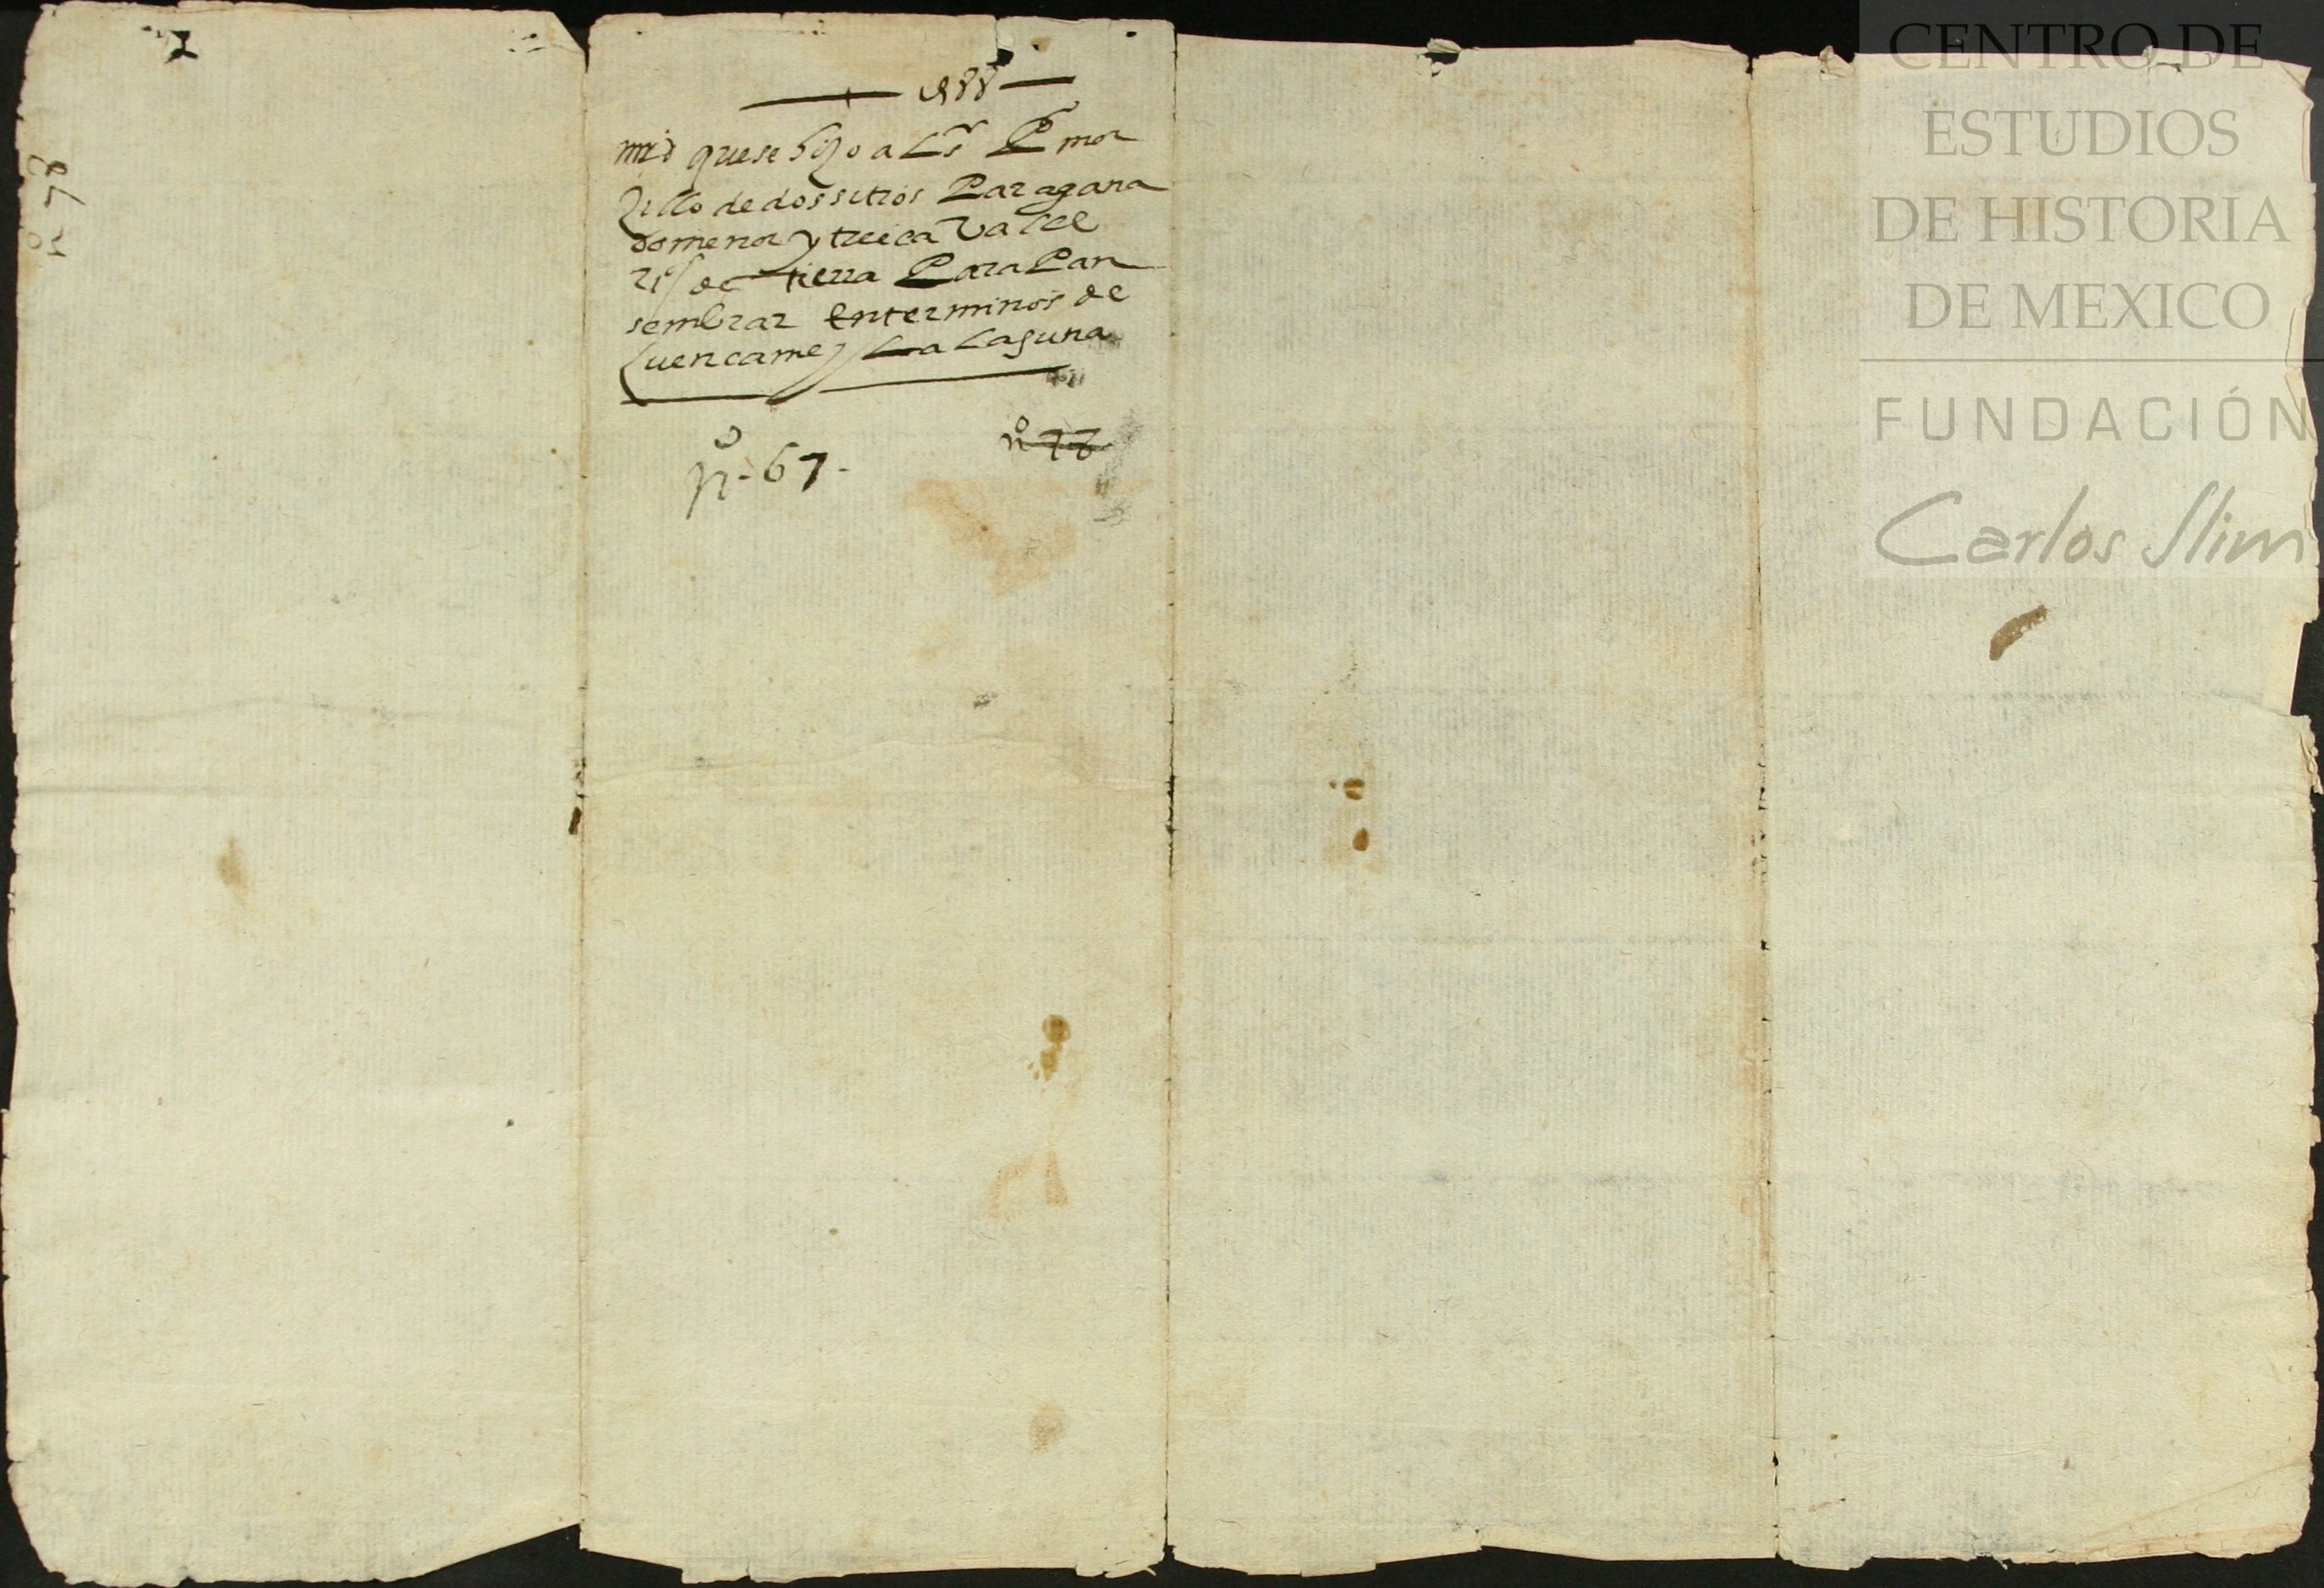 nº 78
1588
mrd que se hizo a Ls P mo
rillo de dos sitios Para gana
do menor y treica Valle
rias de tierra Para Pan
sembrar en terminos de
Cuencame y La Laguna
nº 67
nº 78
CENTRO DE
ESTUDIOS
DE HISTORIA
DE MEXICO
FUNDACIÓN
Carlos Slim